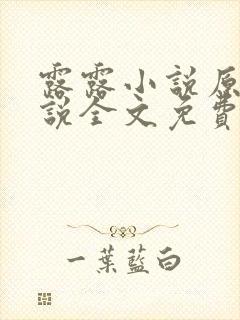 露露小說原
說全文免費
一葉藍白